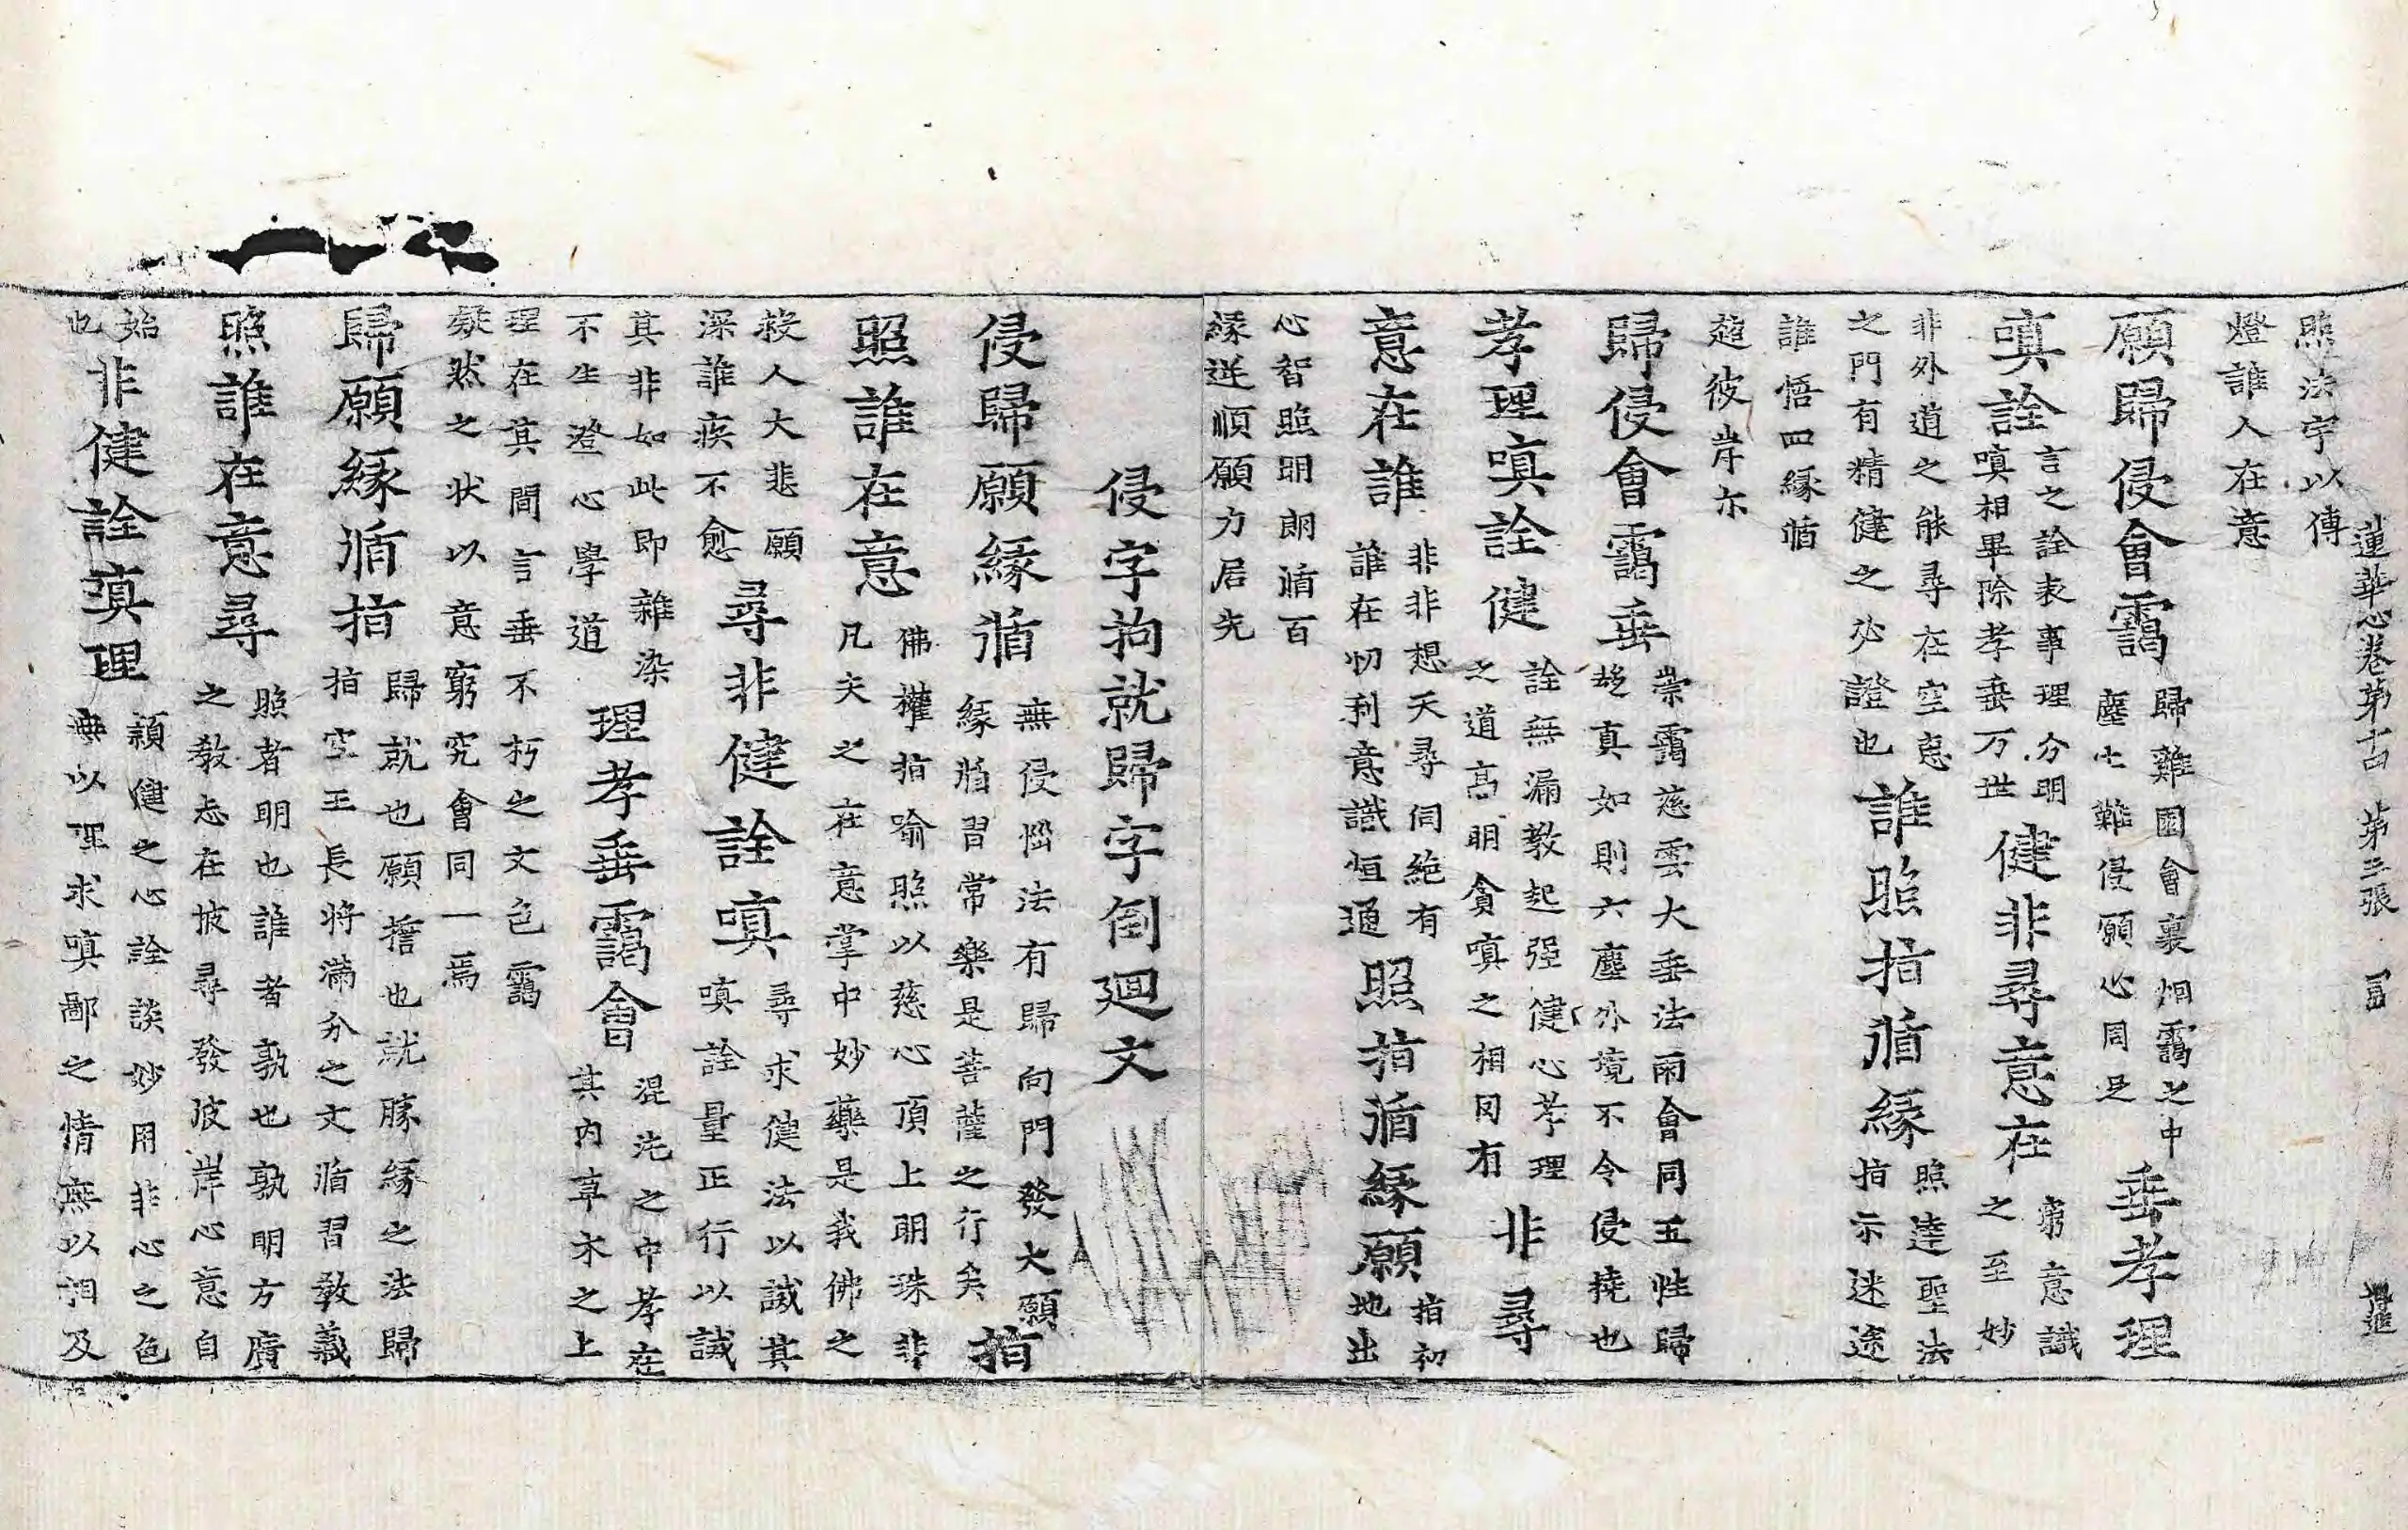 蓮華心卷第十四 第三張
照法宇以傳
燈誰人在意
願歸侵會靄 歸雞園會裏烟靄之中 塵七難侵願心同足 垂孝理
嗔詮 言之詮表事理分明 嗔相畢除孝垂万世 健非尋意在 窮意識 之至妙
非外道之能尋在空
之門有精健之必證也 誰照指循緣 照達聖法 指示迷途
誰悟四緣循
超彼岸尓
歸侵會靄垂 崇靄慈雲大垂法雨會同五性歸 真如則六塵外境不令侵撓也
孝理嗔詮健 詮無漏教起强健心孝理 之道高明貪嗔之相罔有 非尋
意在誰 非非想天尋伺絶有 誰在忉利意識恒通 照指循緣願 指初 地出
心智照明朗循百
緣逆順願力居先
侵字拘就歸字倒廻文
侵歸願緣循 無侵惱法有歸向門發大願 緣循習常樂是菩薩之行矣 指
照誰在意 佛權指喻照以慈心頂上明珠非 凡夫之在意掌中妙藥是我佛之
救人大悲願
深誰疾不愈 尋非健詮嗔 尋求健法以誡其 嗔詮量正行以誡
其非如此即雜染
不生澄心學道 理孝垂靄會 混沌之中孝在 其内草木之上
理在其間言垂不朽之文色靄
凝然之狀以意窮究會同一焉
歸願緣循指 歸就也願擔也就勝緣之法歸 指空王長將滿分之文循習教義
照誰在意尋 照者明也誰者孰也孰明方廣 之教志在披尋發彼岸心意自
始
也 非健詮嗔理 穎健之心詮談妙用非心之色 無以理求嗔鄙之情無以相及